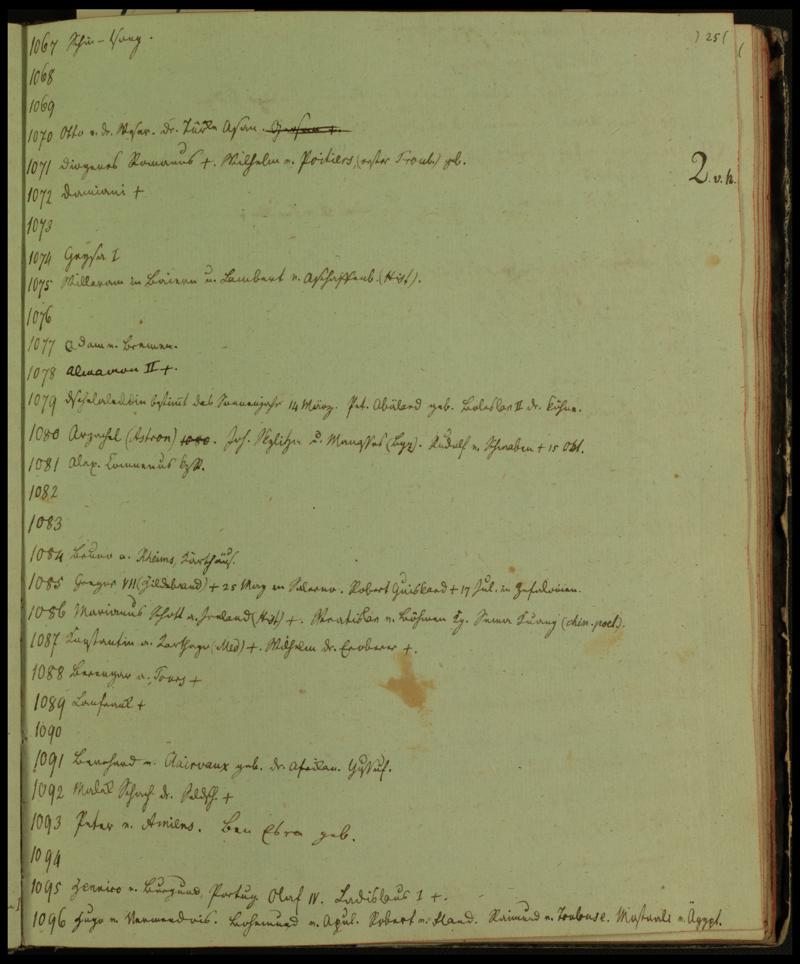 ) 25 (
1067 Schin-Tsong.
1068
1069
1070 Otto v. d. Weser. Dr. Türke Asan.
1071 Diogenes Romanus +. Wilhelm v. Poitiers, (erster Troub.) geb.
2. v. h.
1072 Damiani +
1073
1074 Geysa I
1075 Willeram in Baiern u. Lambert v. Aschaffenb. (Hist).
1076
1077 Adam v. Bremen.
1078 Almamon II +.
1079 Dschelaleddin bestimt das Sonnenjahr 14 März. Pet. Abälard geb. Boleslav II dr. Kühne.
1080 Arzachel (Astron) 1080. Joh. Skylitze u. Manasses (Byz). Rudolf v. Schwaben + 15 Okt.
1081 Alex. Comnenus byz.
1082
1083
1084 Bruno a. Rheims, Karthäus.
1085 Gregor VII (Hildebrand) + 25 May in Salerno. Robert Guiskard + 17 Jul. in Zefalonien.
1086 Marianus Schott a. Ireland (Hist) +. Wratislav v. Böhmen Kg. Sema Kuang (chin. poet).
1087 Konstantin a. Karthago (Med) +. Wilhelm dr. Eroberer +.
1088 Berengar a. Tours +
1089 Lanfrank +
1090
1091 Bernhard v. Clairvaux geb. dr. Afrikan. Yussuf.
1092 Malek Schach dr. Seldsch. +
1093 Peter v. Amiens. Ben Esra geb.
1094
1095 Henrico v. Burgund, Portug. Olaf IV. Ladislaus I +.
1096 Hugo v. Vermandois. Bohemund v. Apul. Robert v. Fland. Raimund v. Toulouse. Mostaali v. Ägypt.